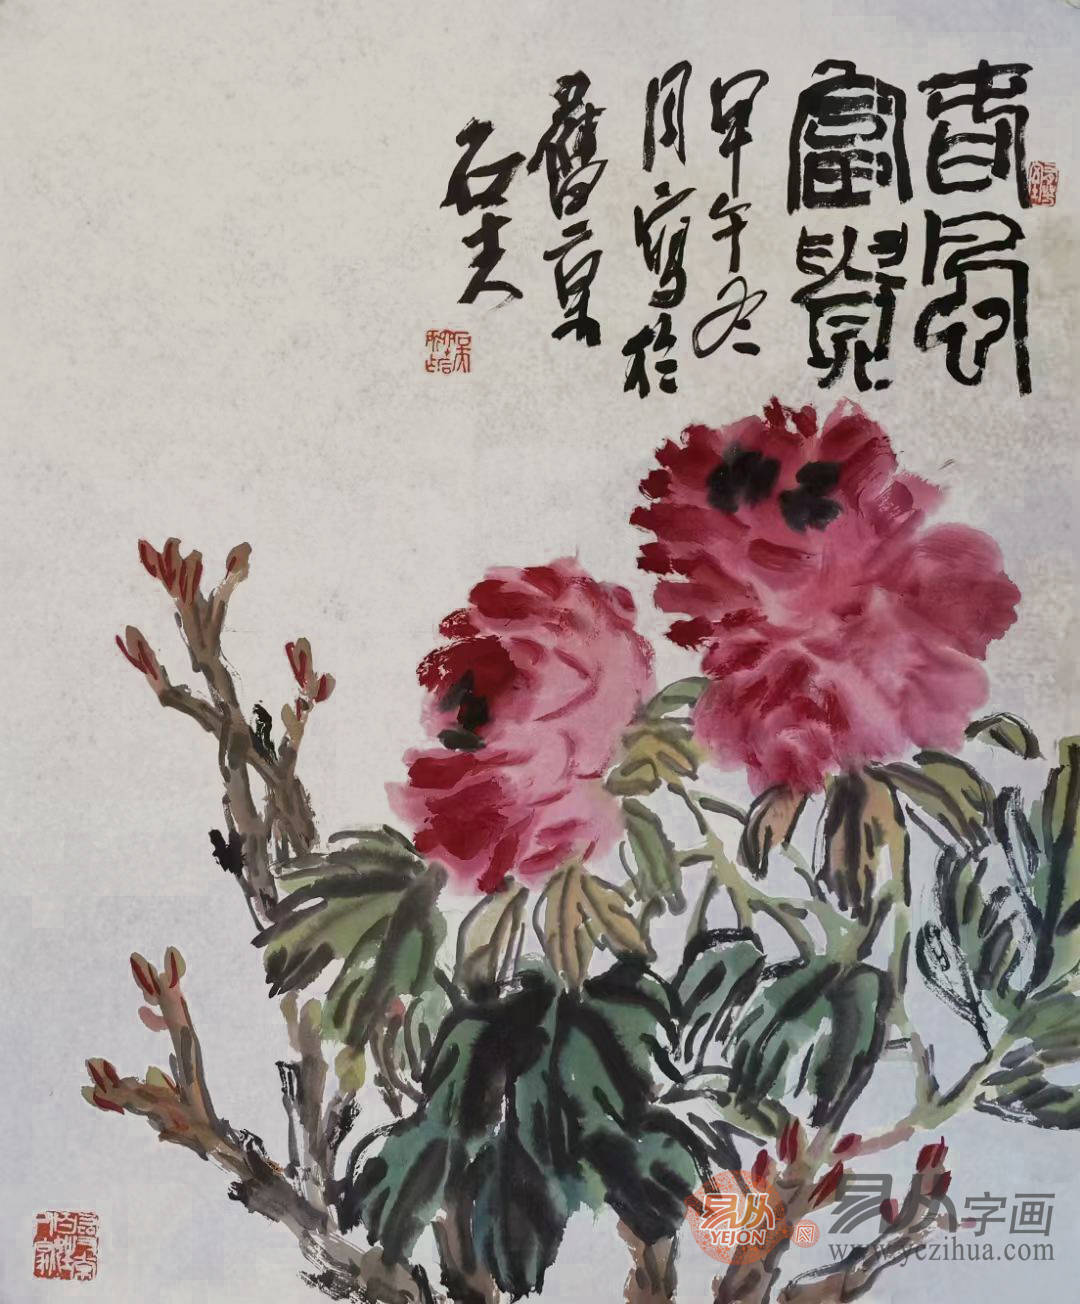 春風
富貴
甲午冬
月寫於
舊京
石夫
易从
YEJON
易从字画
www.yczihua.com